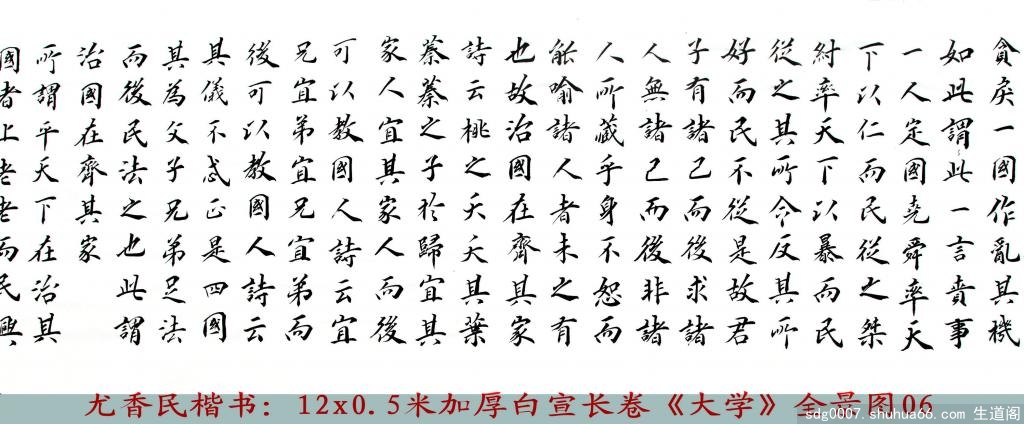 貪戾一國作亂其機
如此謂此一言賁事
一人定國堯舜率天
下以仁而民從之桀
紂率天下以暴而民
從之其所令反其所
好而民不從是故君
子有諸己而後求諸
人無諸己而後非諸
人所藏乎身不恕而
能喻諸人者未之有
也故治國在齊其家
詩云桃之夭夭其葉
蓁蓁之子於歸宜其
家人宜其家人而後
可以教國人詩云宜
兄宜弟宜兄宜弟而
後可以教國人詩云
其儀不忒正是四國
其為父子兄弟足法
而後民法之也此謂
治國在齊其家
所謂平天下在治其
國者上老老而民興
尤香民楷书：12x0.5米加厚白宣长卷《大学》全景图06
sdg0007.shuhua66.com 生道阁